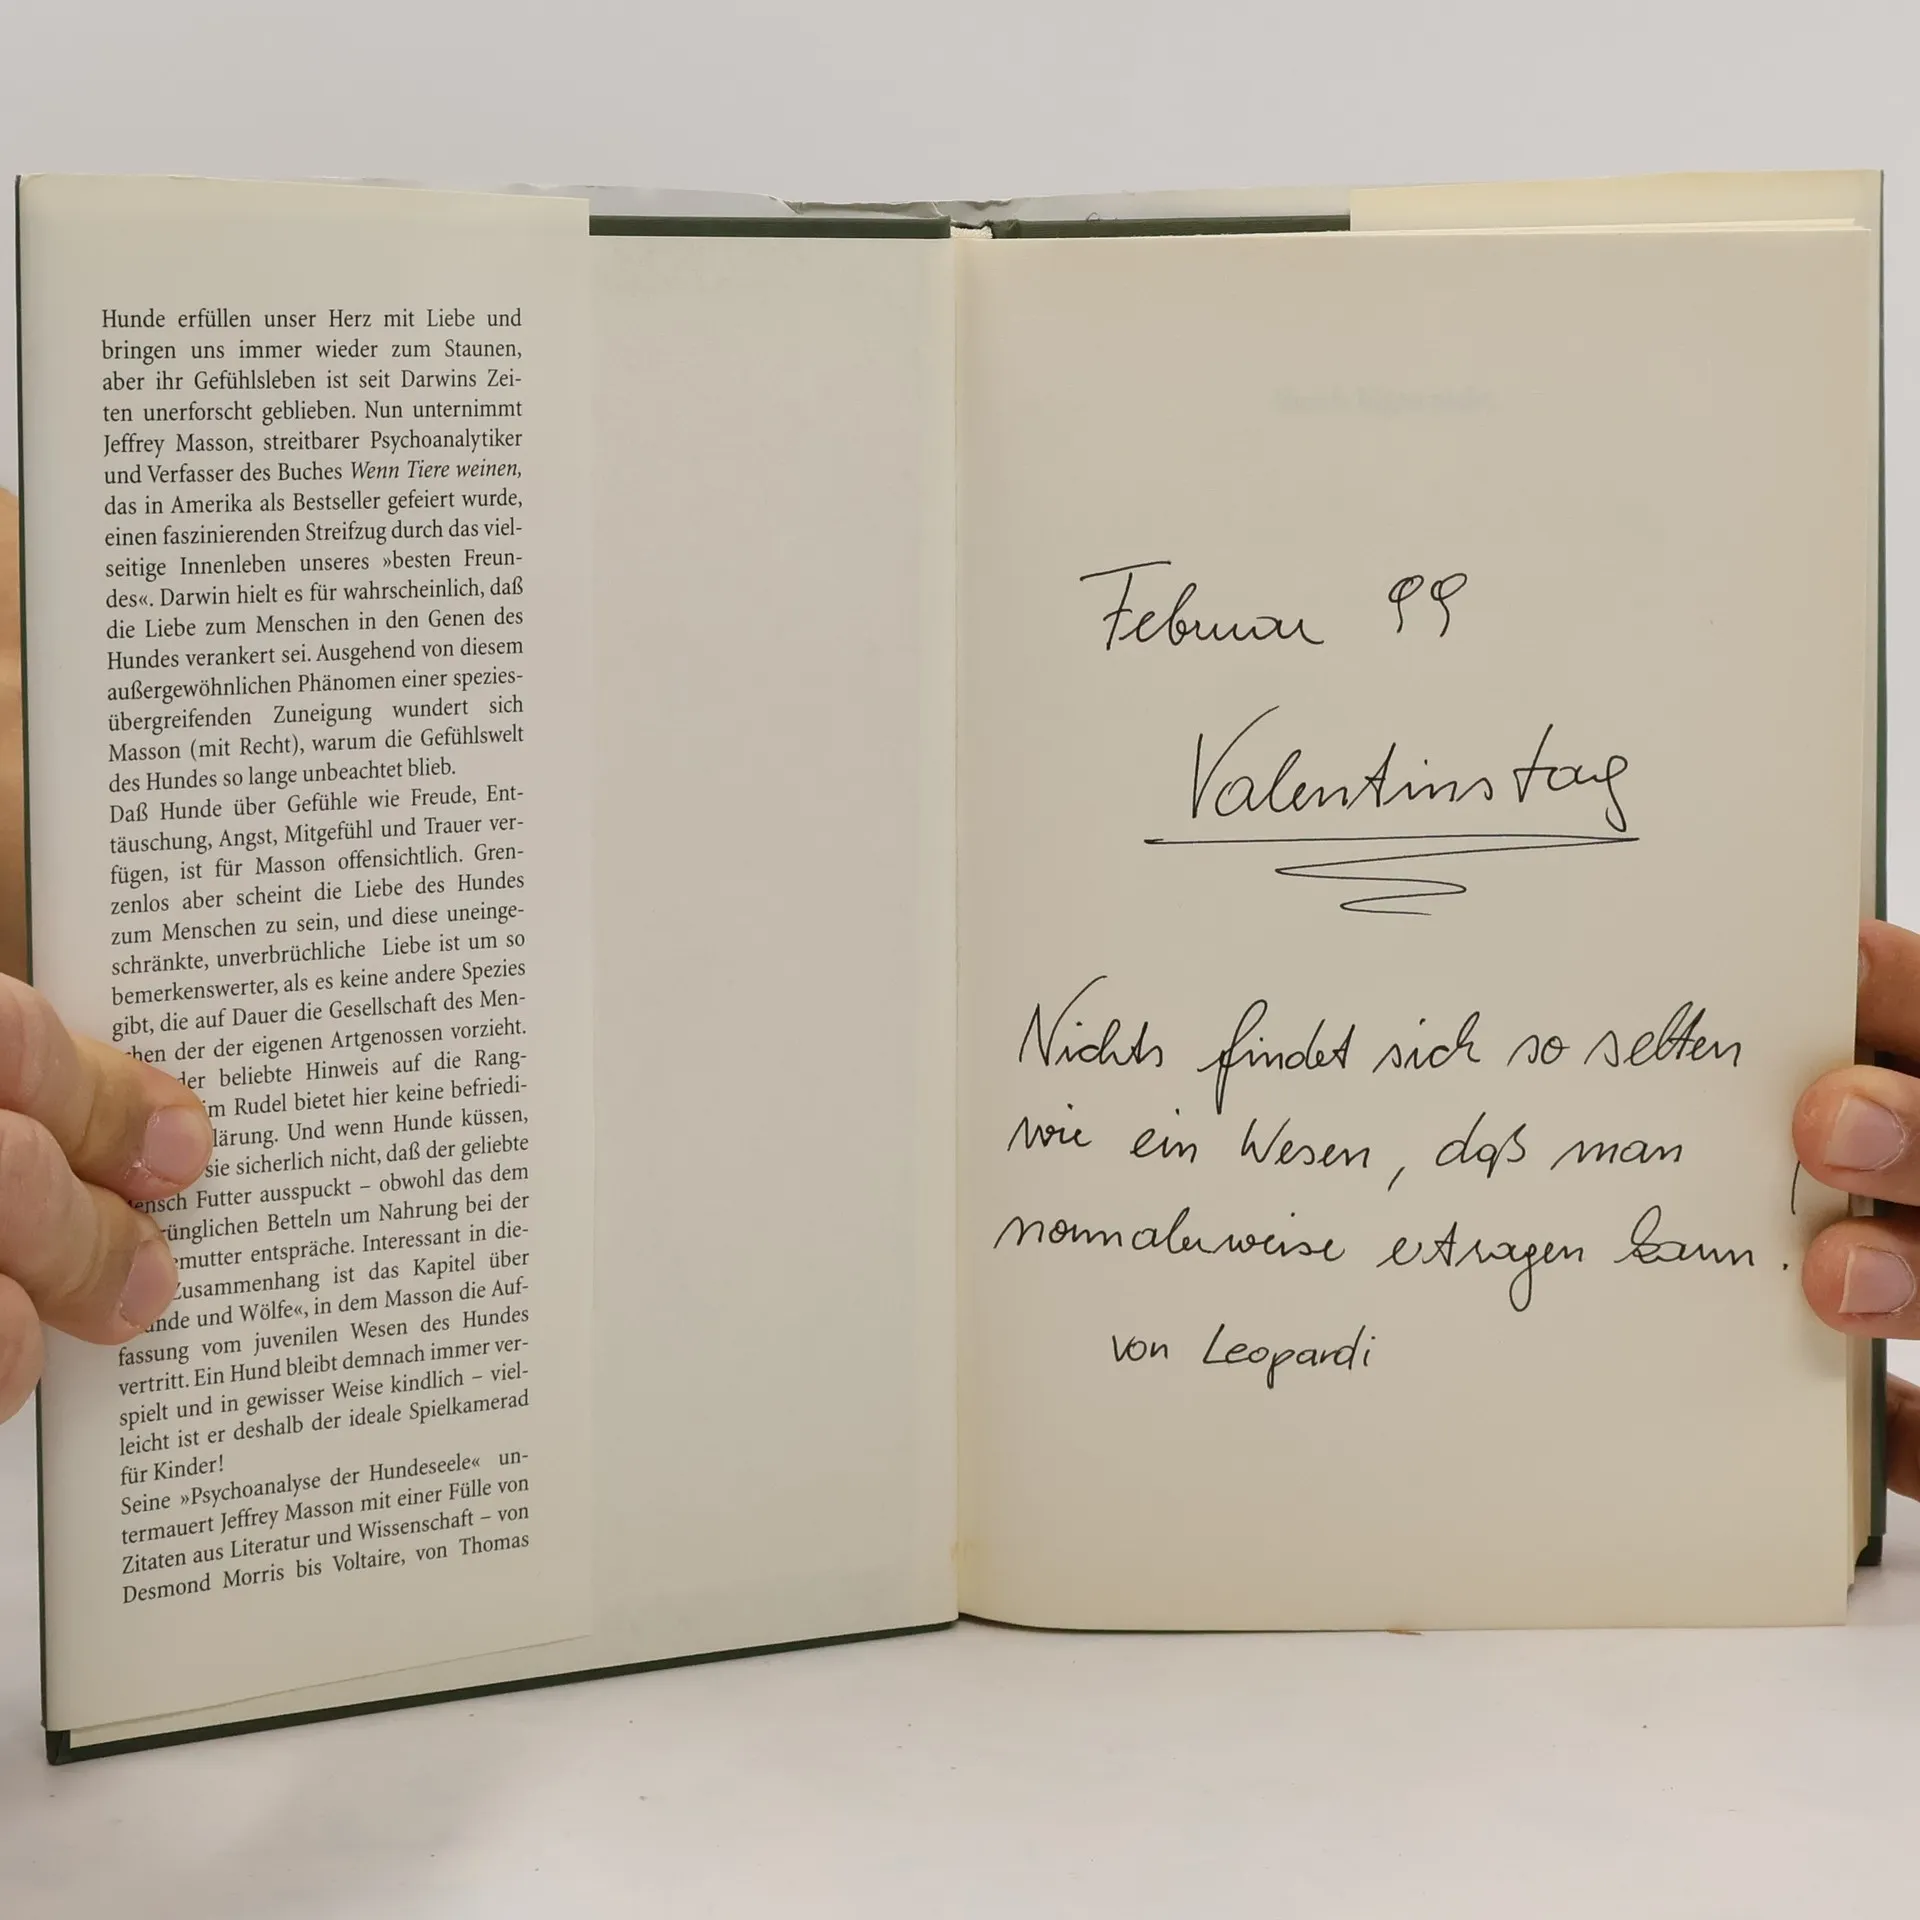 Hunde erfüllen unser Herz mit Liebe und
bringen uns immer wieder zum Staunen,
aber ihr Gefühlsleben ist seit Darwins Zei-
ten unerforscht geblieben. Nun unternimmt
Jeffrey Masson, streitbarer Psychoanalytiker
und Verfasser des Buches Wenn Tiere weinen,
das in Amerika als Bestseller gefeiert wurde,
einen faszinierenden Streifzug durch das viel-
seitige Innenleben unseres »besten Freun-
des«. Darwin hielt es für wahrscheinlich, daß
die Liebe zum Menschen in den Genen des
Hundes verankert sei. Ausgehend von diesem
außergewöhnlichen Phänomen einer spezies-
übergreifenden Zuneigung wundert sich
Masson (mit Recht), warum die Gefühlswelt
des Hundes so lange unbeachtet blieb.
Daß Hunde über Gefühle wie Freude, Ent-
täuschung, Angst, Mitgefühl und Trauer ver-
fügen, ist für Masson offensichtlich. Gren-
zenlos aber scheint die Liebe des Hundes
zum Menschen zu sein, und diese uneinge-
schränkte, unverbrüchliche Liebe ist um so
bemerkenswerter, als es keine andere Spezies
gibt, die auf Dauer die Gesellschaft des Men-
chen der der eigenen Artgenossen vorzieht.
der beliebte Hinweis auf die Rang-
im Rudel bietet hier keine befriedi-
lärung. Und wenn Hunde küssen,
sie sicherlich nicht, daß der geliebte
ensch Futter ausspuckt – obwohl das dem
ünglichen Betteln um Nahrung bei der
emutter entspräche. Interessant in die-
Zusammenhang ist das Kapitel über
unde und Wölfe«, in dem Masson die Auf-
fassung vom juvenilen Wesen des Hundes
vertritt. Ein Hund bleibt demnach immer ver-
spielt und in gewisser Weise kindlich – viel-
leicht ist er deshalb der ideale Spielkamerad
für Kinder!
Seine »Psychoanalyse der Hundeseele« un-
termauert Jeffrey Masson mit einer Fülle von
Zitaten aus Literatur und Wissenschaft – von
Desmond Morris bis Voltaire, von Thomas
Februar 99
Valentinstag
Nichts findet sich so selten
wie ein Wesen, daß man
normalerweise ertragen kann!
von Leopardi